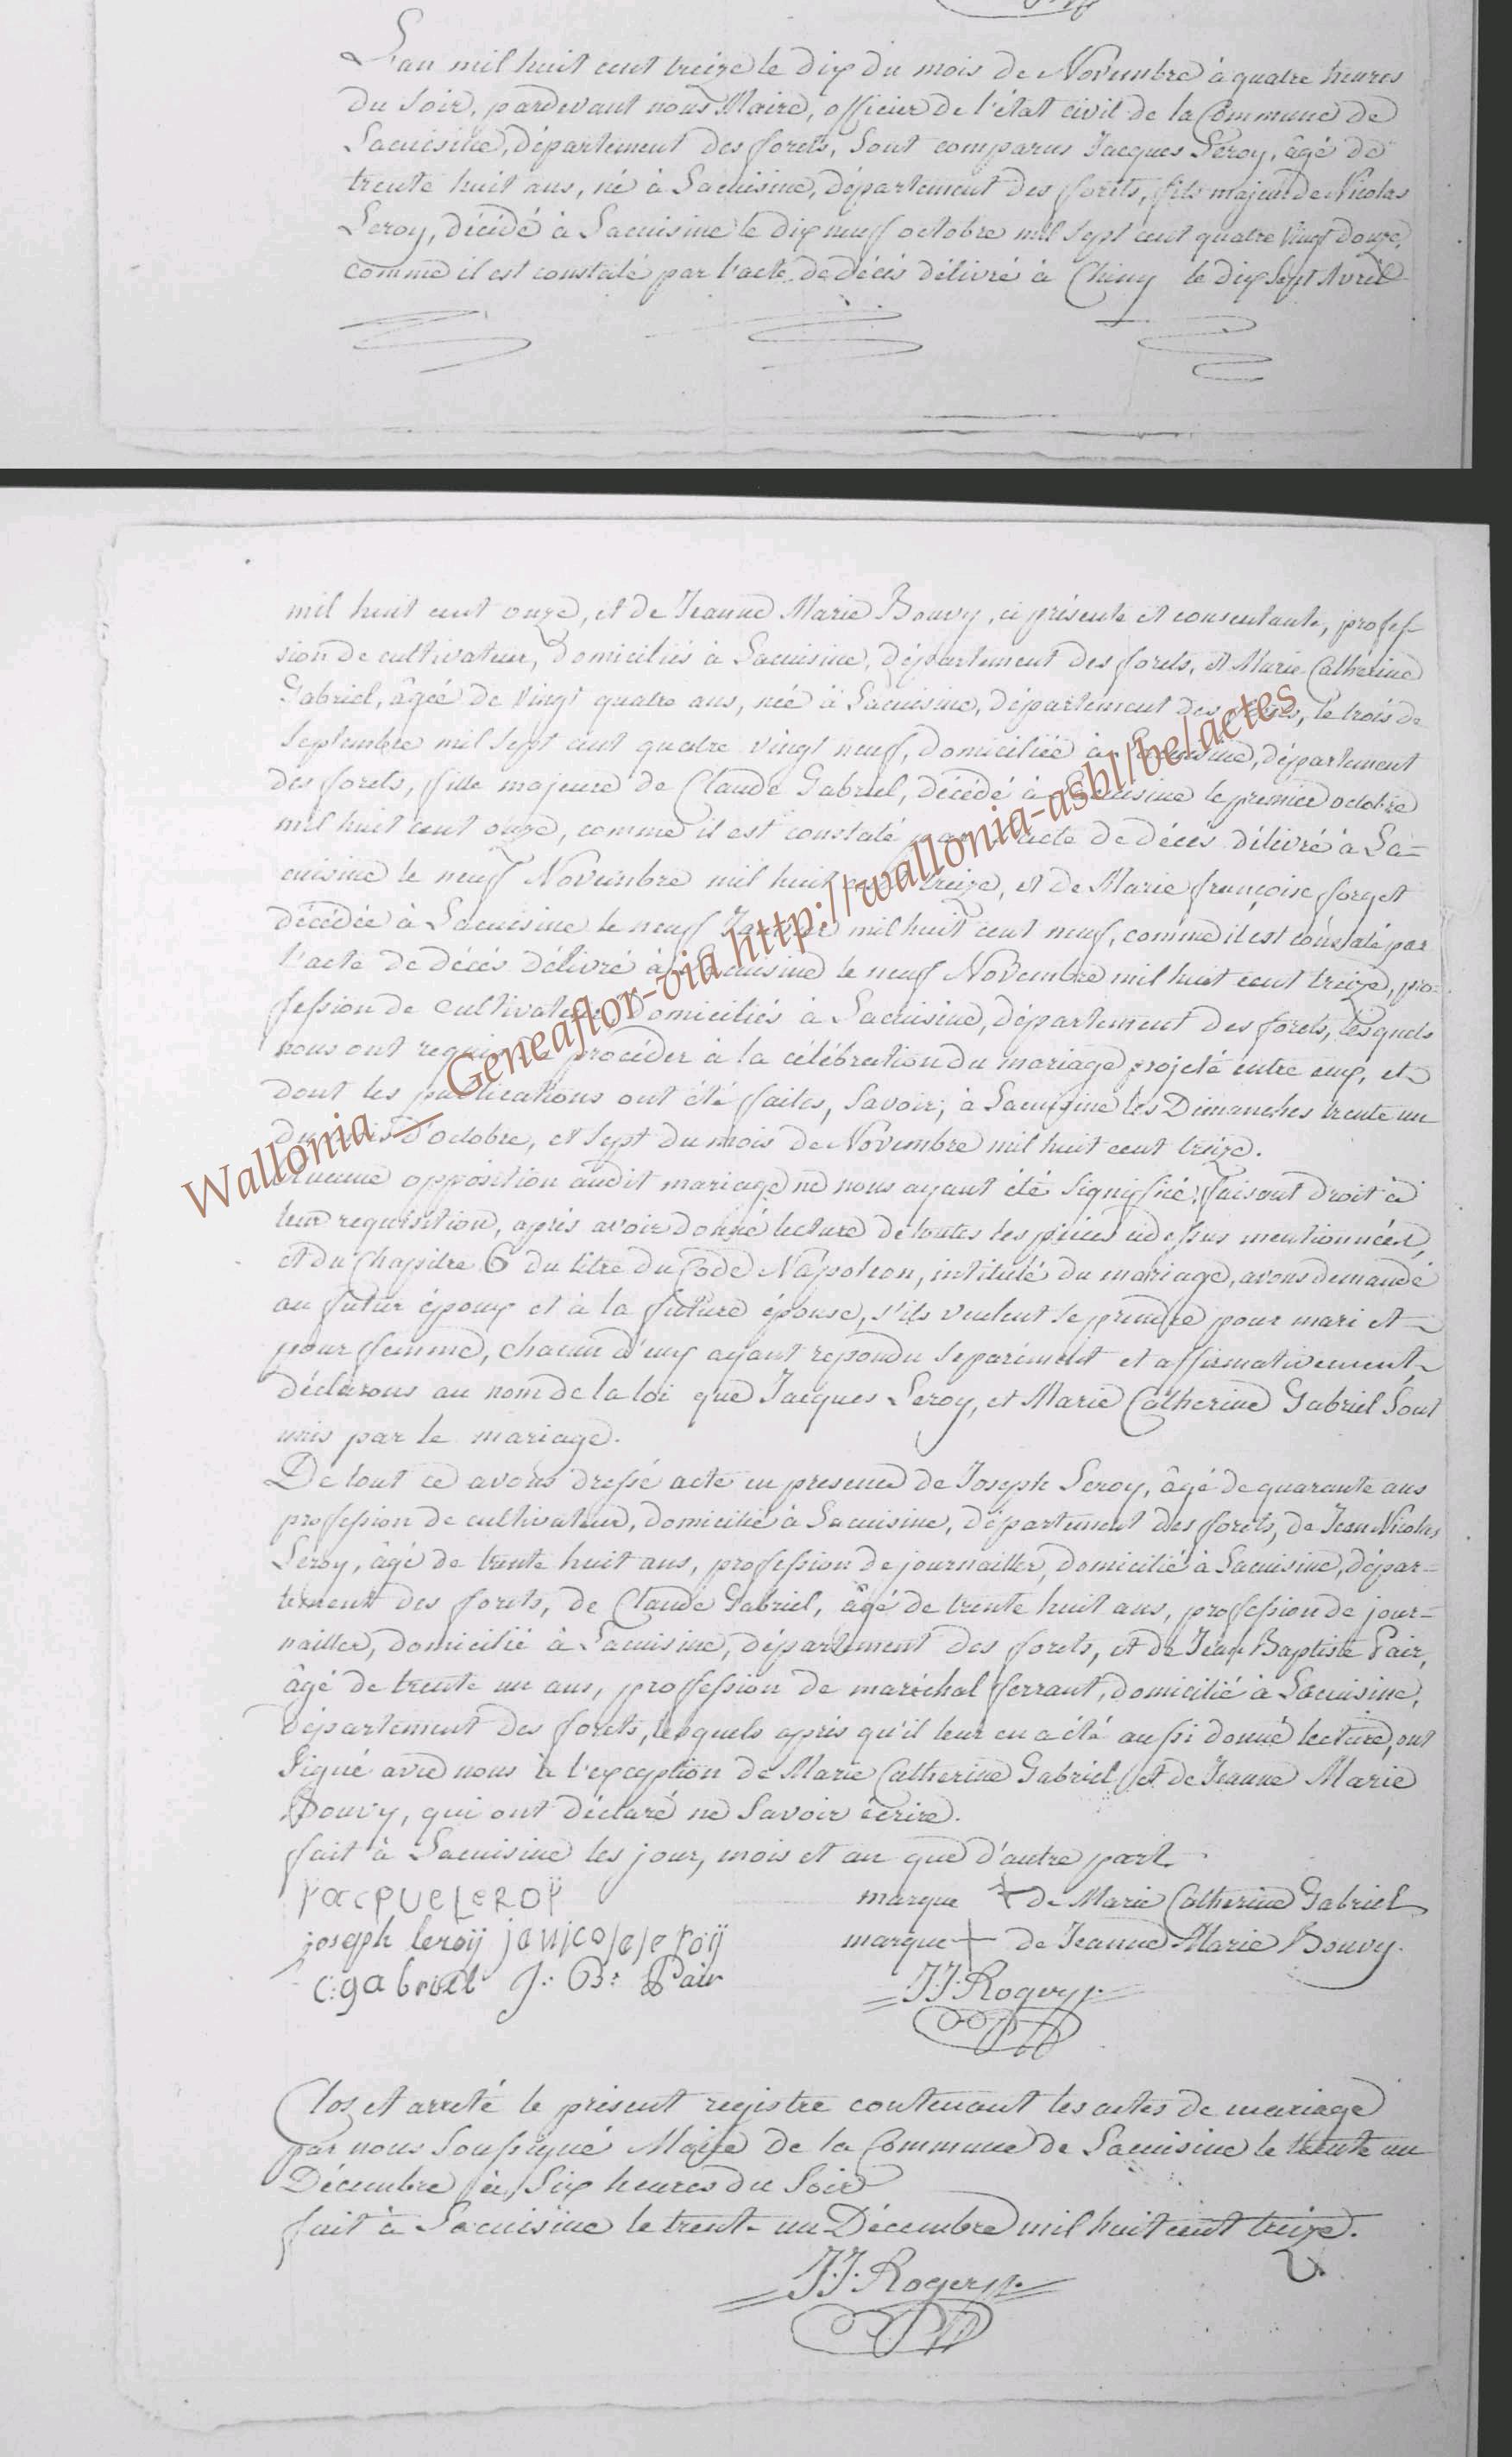 L'an mil huit cent treize le dix du mois de Novembre à quatre heures
du Soir, pardevant nous Maire, officier de l'état civil de la Commune de
Lacuisine, département des forets, Sont comparus Jacques Leroy, âgé de
trente huit ans, né à Lacuisine, département des forêts, fils majeur de Nicolas
Leroy, décédé à Lacuisine le dix neuf octobre mil Sept cent quatre Vingt douze,
comme il est constaté par l'acte de décès délivré à Chiny le dix Sept Avril
mil huit cent onze, et de Jeanne Marie Bouvy, ci présente et consentante, profes-
sion de cultivateur, Domiciliés à Lacuisine, département des forets, et Marie Cathérine
Gabriel, âgée de Vingt quatre ans, née à Lacuisine, département des forets, le trois de
Septembre mil Sept cent quatre vingt neuf, domiciliée à Lacuisine, département
des forets, fille majeure de Claude Gabriel, décédé à Lacuisine le premier octobre
mil huit cent onze, comme il est constaté par l'acte de décès délivré à La=
cuisine le neuf Novembre mil huit cent treize, et de Marie françoise forget
décédée à Lacuisine le neuf Janvier mil huit cent neuf, comme il est constaté par
l'acte de décès délivré à Lacuisine le neuf Novembre mil huit cent treize, pro=
fession de Cultivateur Domiciliés à Lacuisine, département des forets, lesquels
nous ont requis de procéder à la célébration du mariage projeté entre eux, et
dont les publications ont été faites, Savoir; à Lacuisine les Dimanches trente un
du mois d'octobre, et Sept du mois de Novembre mil huit cent treize.
Aucune opposition audit mariage ne nous ayant été Signifiée, faisant droit à
leur requisition, après avoir donné lecture de toutes les pièces cidessus mentionnées,
et du Chapitre 6 du titre du Code Napoleon, intitulé du mariage, avons demandé
au futur époux et à la future épouse, s'ils veulent se prendre pour mari et
pour femme, chacun d'eux ayant repondu Séparément et affirmativement
déclarons au nom de la loi que Jacques Leroy, et Marie Catherine Gabriel Sont
unis par le mariage.
De tout ce avons dressé acte en presence de Joseph Leroy, âgé de quarante ans
profession de cultivateur, domicilié à Lacuisine, département des forets, de Jean Nicolas
Leroy, âgé de trente huit ans, profession de journailler, domicilié à Lacuisine, dépar=
tement des forets, de Claude Gabriel, âgé de trente huit ans, profession de jour=
nailler, domicilié à Lacuisine, département des forets, et de Jean Baptiste Pair,
âgé de trente un ans, profession de maréchal ferrant, domicilié à Lacuisine,
département des forets, lesquels après qu'il leur en a été aussi donné lecture, ont
Signé avec nous à l'exception de Marie Catherine Gabriel et de Jeanne Marie
Bouvy, qui ont déclaré ne Savoir écrire.
fait à Lacuisine les jour, mois et an que d'autre part.
JacPUELeROŸ
marque de Marie Catherine Gabriel
joseph leroÿ janicolaleroÿ
marque de Jeanne Marie Bouvy.
C:gabriel J: B: Pair
J.J. Rogery
Clos et arreté le présent registre contenant les actes de mariage
par nous Soussigné Maire de la Commune de Lacuisine le trente un
Décembre à Six heures du Soir
fait à Lacuisine le trente un Décembre mil huit cent treize.
J.J. Rogery
Wallonia _ Geneaflor-via http://wallonia-asbl/be/actes